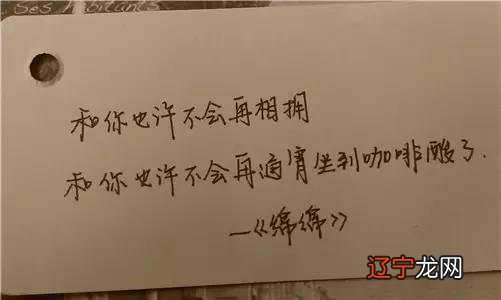 Ses Habitants
和你也许不会再相拥
和你也许不会再通宵坐到咖啡酸了.
—《绵绵》
辽宁龙网